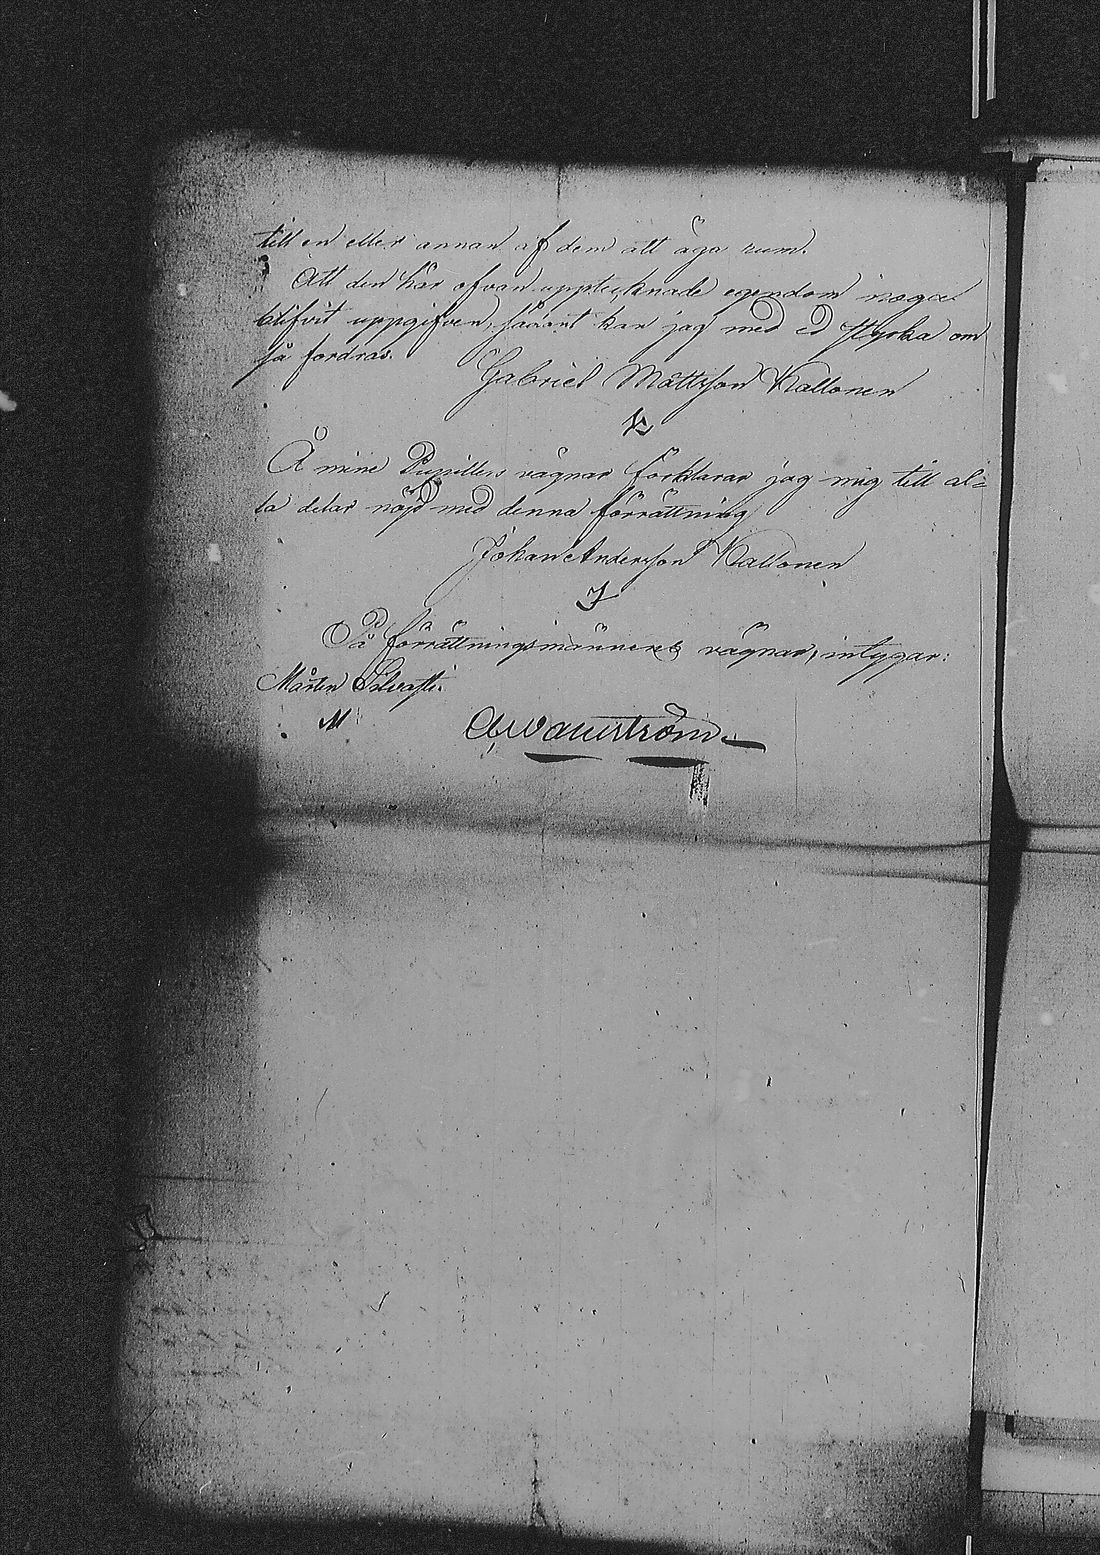 till en eller annan af dem att äga rum.
Att den här ofvan upptecknade egendom noga
blifvit uppgifven, sådant kan jag med ed styrka om
så fordras.
Gabriel Mattsson Kallonen
Å mine Pupillers vägnar förklarar jag mig till al=
la delar nöjd med denna förrättning
Johan Andersson Kallonen
På förrättningsmännens vägnar, intygar:
Mårten
M